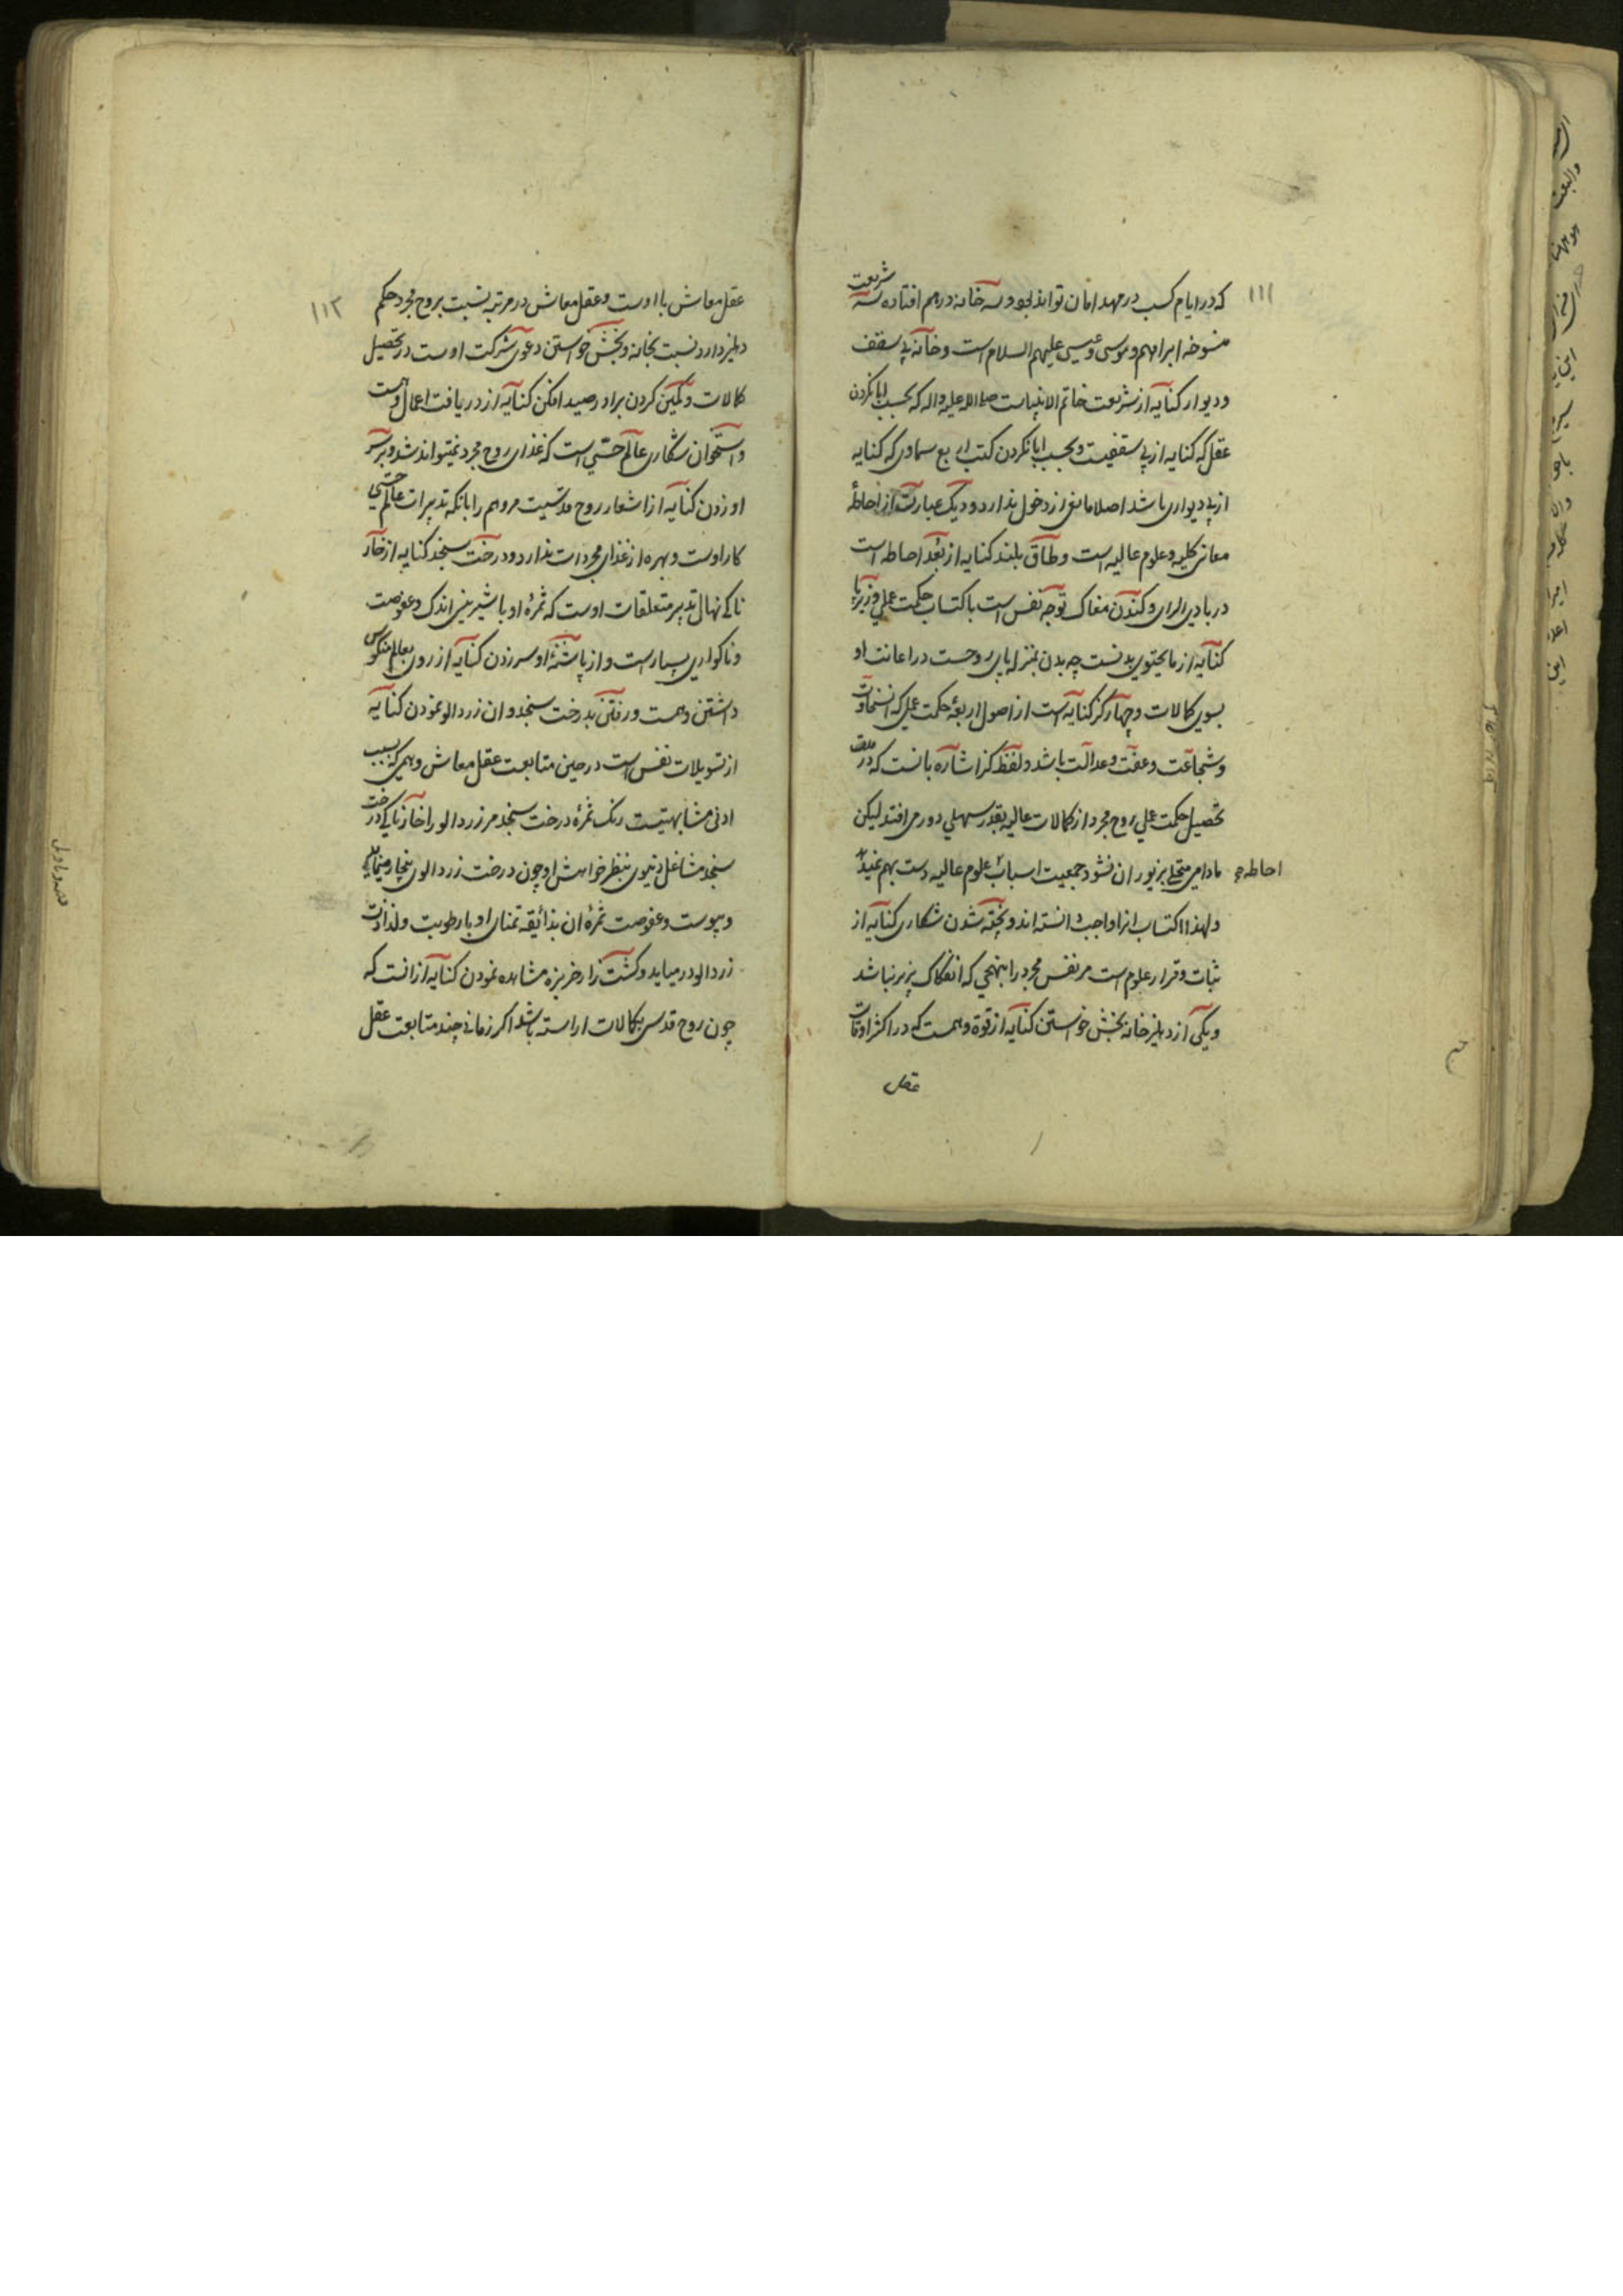 ۱۱۱
که در ایام کسب در مهد امان تواند بود و سه خانه درهم افتاده سه شریعت
منسوخه ابراهیم و موسی و عیسی علیهم السلام است و خانه بی سقف
و دیوار کنایه از شریعت خاتم الانبیاست صلی الله علیه و اله که بحسب ابا نکردن
عقل که کنایه از بی سقفیت و بحسب ابا نکردن کتب اربع سماوی که کنایه
از بی دیواری باشد اصلا مانعی از دخول ندارد و دیک عبارت از احاطهٔ
معانی کلیه و علوم عالیه است و طاق بلند کنایه از بعد احاطه است
در بادی الرای و کندن مغاک توجه نفس است باکتساب حکمت عملی و زیر پا
کنایه از مایحتوی بدنست چه بدن بمنزله پای روحست در اعانت او
بسوی کمالات و چهار کز کنایه است از اصول اربعهٔ حکمت عملی که ان سخاوت
و شجاعت و عفت و عدالت باشد و لفظ کز اشاره بانست که در
تحصیل حکمت عملی روح مجرد از کمالات عالیه بقدر سهلی دور می افتد لیکن
مادامی متحلی بزیور ان نشود جمعیت اسباب علوم عالیه دست بهم نمیدهد
احاطه
و لهذا اکتساب انرا واجب دانسته اند و پخته شدن شکاری کنایه از
ثبات و قرار علوم است مر نفس مجرد را بنهجی که انفکاک پزیر نباشد
و یکی از دهلیز خانه بخش خواستن کنایه از قوة وهمست که در اکثر اوقات
عقل
۱۱۲
عقل معاش با اوست و عقل معاش در مرتبه نسبت بروح مجرد حکم
دهلیز دارد نسبت بخانه و بخش خواستن دعوی شرکت اوست در تحصیل
کمالات و کمین کردن برادر صید افکن کنایه از دریافت اعمال وهمست
و استخوان شکاری عالم حسی است که غذای روح مجرد نمیتواند شد و بر سر
او زدن کنایه از اشعار روح قدسیت مر وهم را بانکه تدبیرات عالم حسی
کار اوست و بهره از غذای مجردات ندارد و درخت سنجد کنایه از خار
ناکی نهال تدبیر متعلقات اوست که ثمرهٔ او با شیرینی اندک و عفوصت
و ناکواری بسیارست و از پاشنهٔ او سر زدن کنایه از روی بعالم منکوس
داشتن وهمست و رفتن بدرخت سنجد و ان زردالو نمودن کنایه
از تسویلات نفس است در حین متابعت عقل معاش وهمی که بسبب
ادنی مشابهتیست رنک ثمرهٔ درخت سنجد مر زردالو را خارناکی درخت
سنجد مشاغل دنیوی بنظر خواهش او چون درخت زردالوی بیخار مینماید
و یبوست و عفوصت ثمرهٔ ان بذائقه تمنای او با رطوبت و لذاذت
زردالو در میاید و کشت زار خربزه مشاهده نمودن کنایه از انست که
چون روح قدسی بکمالات اراسته باشد اکر زمانی چند متابعت عقل